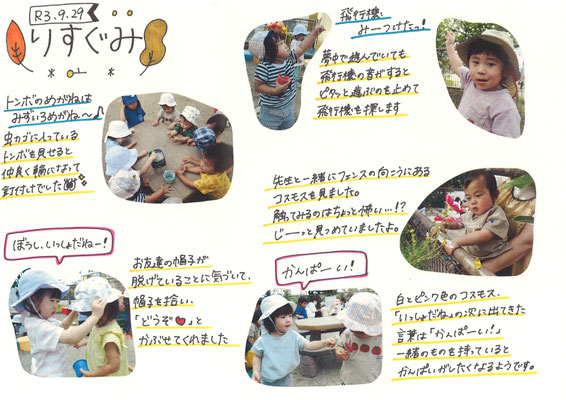 R3.9.29
りすぐみ
トンボのめがねは
みずいろめがね〜♪
虫カゴに入っている
トンボを見せると
仲良く輪になって
釘付けでした
飛行機、
みーつけたっ!
夢中で遊んでいても
飛行機の音がすると
ピタッと遊ぶのを止めて
飛行機を探します
先生と一緒にフェンスの向こうにある
コスモスを見ました。
触ってみるのはちょっと怖い…!?
じーーっと見つめていましたよ。
ぼうし、いっしょだねー!
お友達の帽子が
脱げていることに気づいて、
帽子を拾い、
「どうぞ♥」と
かぶせてくれました
かんぱーい!
白とピンク色のコスモス、
「いっしょだね」の次に出てきた
言葉は「かんぱーい!」
一緒のものを持っていると
かんぱいがしたくなるようです。